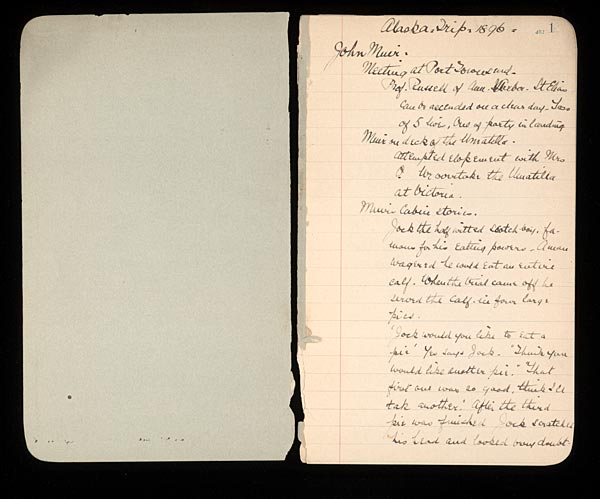 Alaska Trip. 1896.
1
John Muir.
Meeting at Port Townsend.
Prof. Russell of Ann Arbor. St Elias
can be ascended on a clear day. Loss
of 5 lives, One of party in landing
Muir on deck of the Umatilla.
attempted elopement with Mrs
We overtake the Umatilla
at Victoria.
Muir's Cabin stories.
Jock the half witted scotch boy. fa-
mous for his eating powers. A man
wagered he would eat an entire
calf. When the trial came off he
served the calf in four large
pies.
'Jock would you like to eat a
pie' Yes says Jock. "Think you
would like another pie." "That
first one was so good, think I'll
tak another.' After the third
pie was finished Jock scratched
his head and looked very doubt-